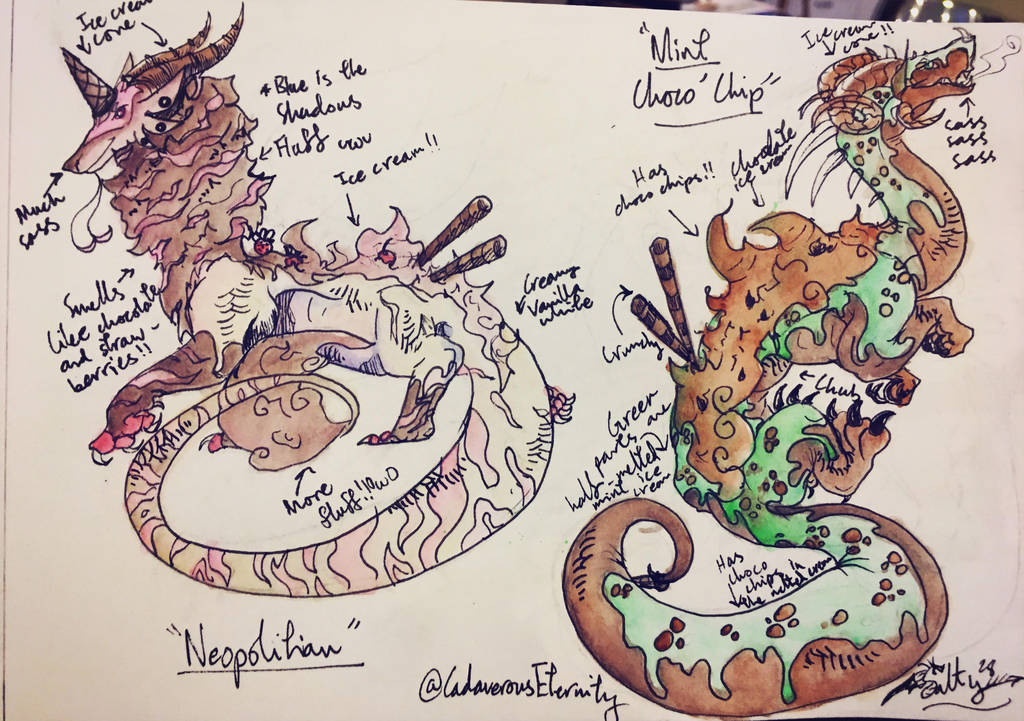 Ice cream
cone
* Blue is the
shadows
Fluff uwu
Ice cream!!
Much
sass
Smells
like chocolate
and straw-
berries!!
Creamy
vanilla
white
More
fluff!! OwO
"Neopolitian"
"Mint
Choco' Chip"
Ice cream
cone!!
sass
sass
sass
Has
choco chips!!
chocolate
ice cream
Crunchy
Chub
Green
parts are
half-melted
mint ice
cream
Has
choco
chips in
the melted cream
@CadaverousEternity